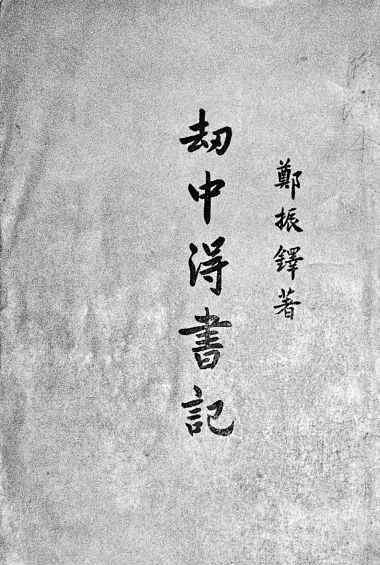 鄭振鐸著
刼中得書記